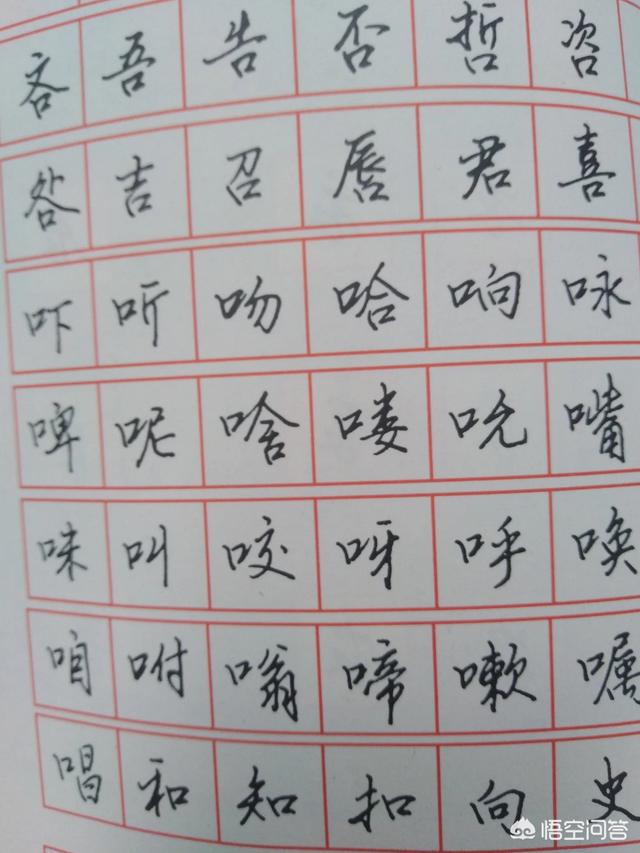 吝 吾 告 否 哲 咨
咎 吉 召 唇 君 喜
吓 听 吻 哈 响 咏
啤 呢 啥 喽 吮 嘴
味 叫 咬 呀 呼 唤
咱 咐 嗡 啼 嗽 嘱
唱 和 知 扣 向 史
悟空问答